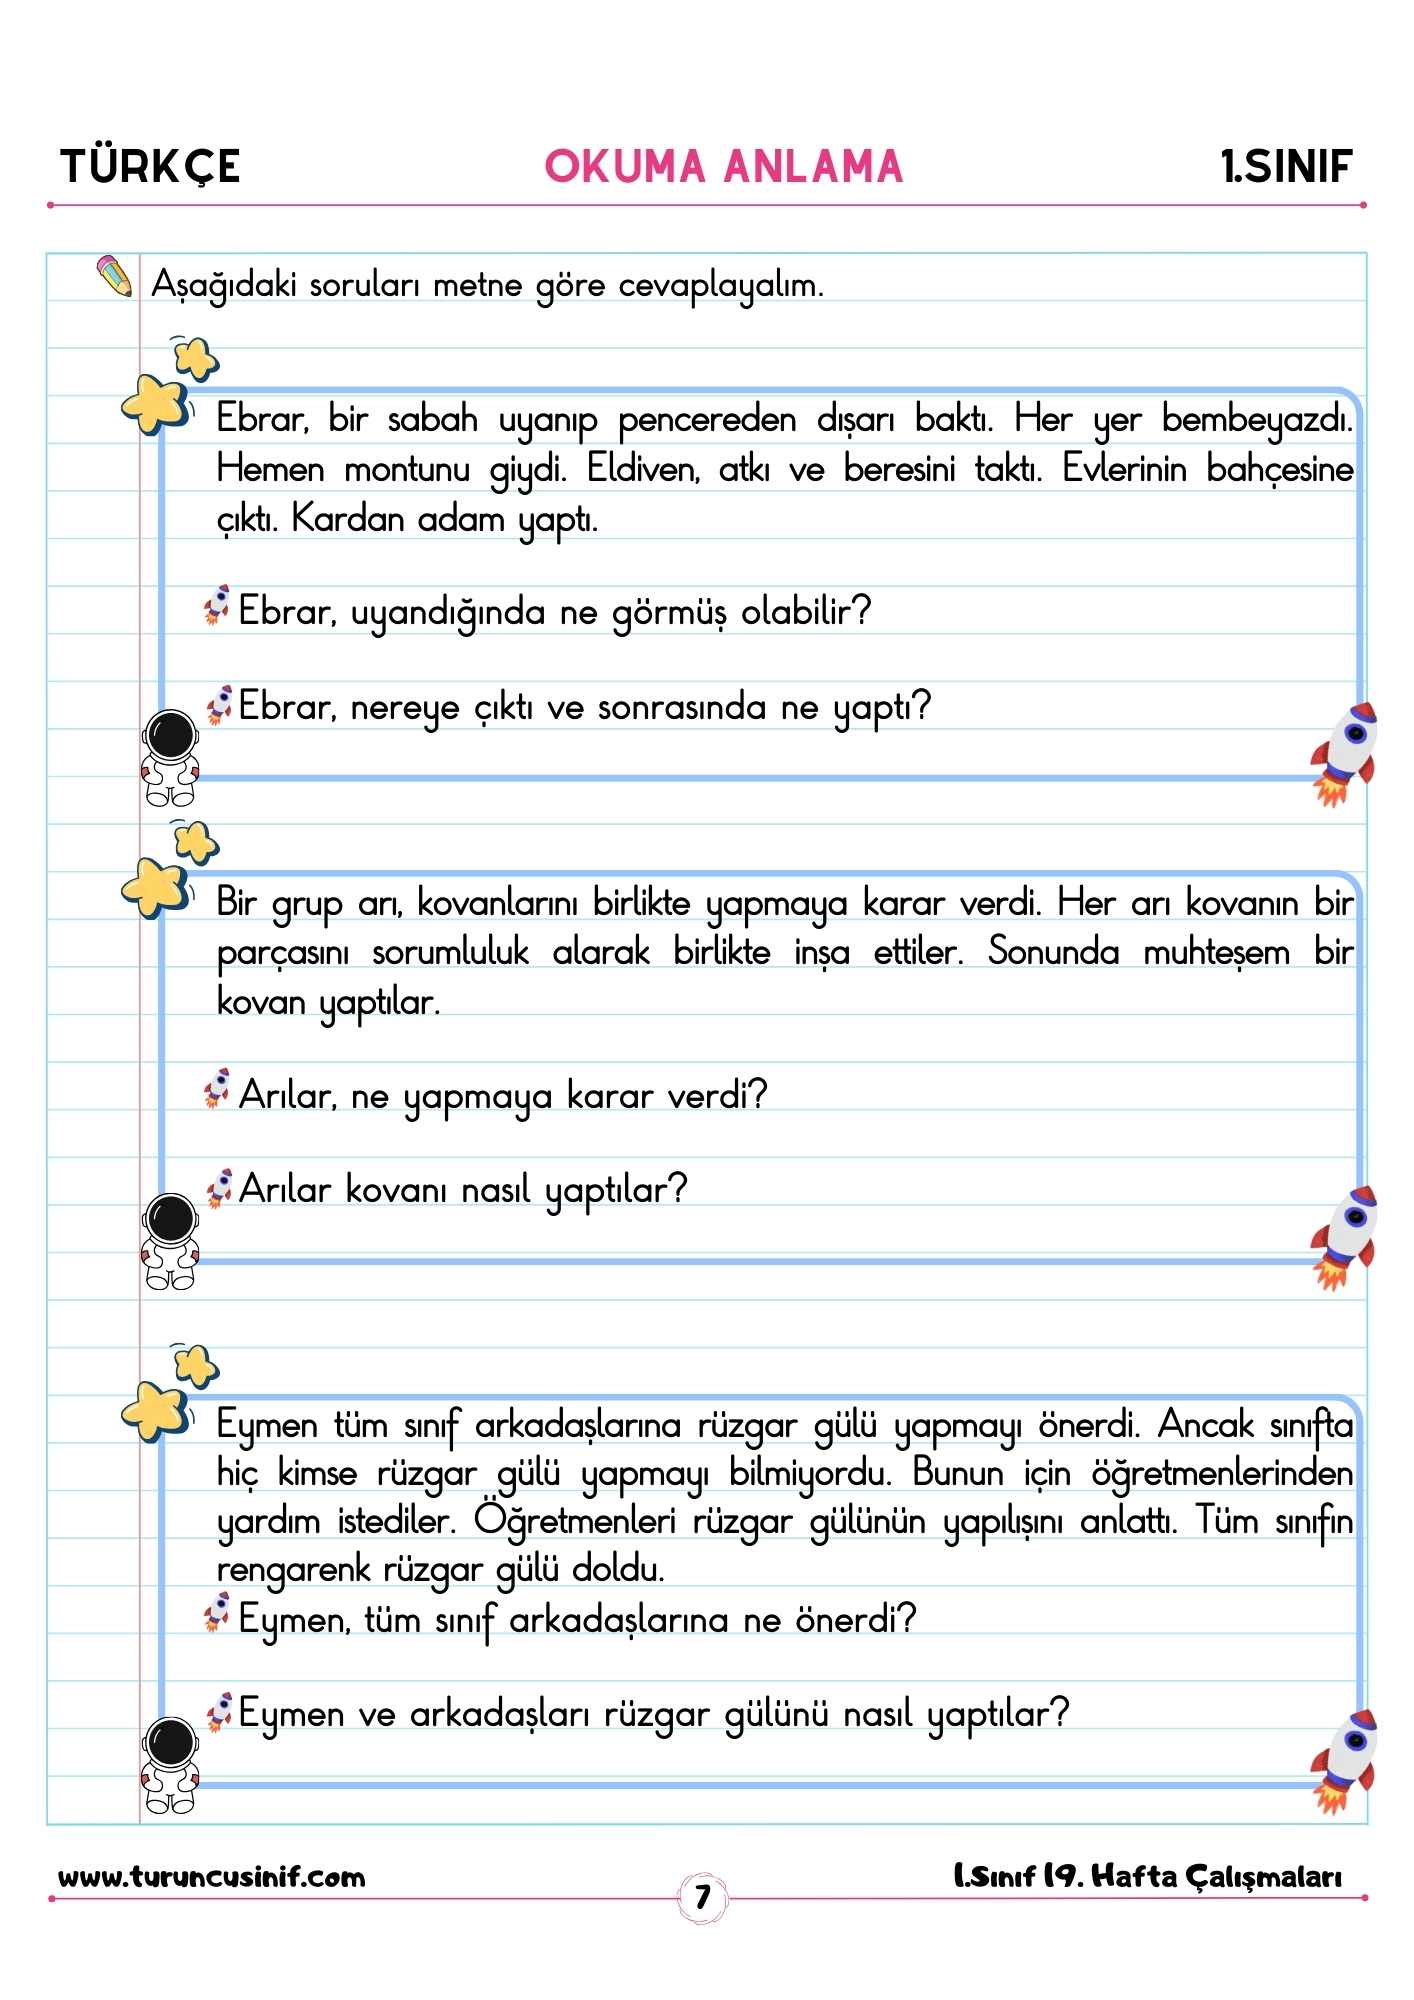 TÜRKÇE OKUMA ANLAMA 1.SINIF
Aşağıdaki soruları metne göre cevaplayalım.
Ebrar, bir sabah uyanıp pencereden dışarı baktı. Her yer bembeyazdı.
Hemen montunu giydi. Eldiven, atkı ve beresini taktı. Evlerinin bahçesine
çıktı. Kardan adam yaptı.
Ebrar, uyandığında ne görmüş olabilir?
Ebrar, nereye çıktı ve sonrasında ne yaptı?
Bir grup arı, kovanlarını birlikte yapmaya karar verdi. Her arı kovanın bir
parçasını sorumluluk alarak birlikte inşa ettiler. Sonunda muhteşem bir
kovan yaptılar.
Arılar, ne yapmaya karar verdi?
Arılar kovanı nasıl yaptılar?
Eymen tüm sınıf arkadaşlarına rüzgar gülü yapmayı önerdi. Ancak sınıfta
hiç kimse rüzgar gülü yapmayı bilmiyordu. Bunun için öğretmenlerinden
yardım istediler. Öğretmenleri rüzgar gülünün yapılışını anlattı. Tüm sınıfın
rengarenk rüzgar gülü doldu.
Eymen, tüm sınıf arkadaşlarına ne önerdi?
Eymen ve arkadaşları rüzgar gülünü nasıl yaptılar?
www.turuncusinif.com 7 1.Sınıf 19. Hafta Çalışmaları